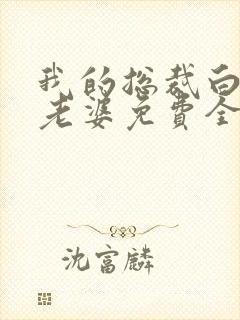 我的总裁白
老婆免费全
沈富麟